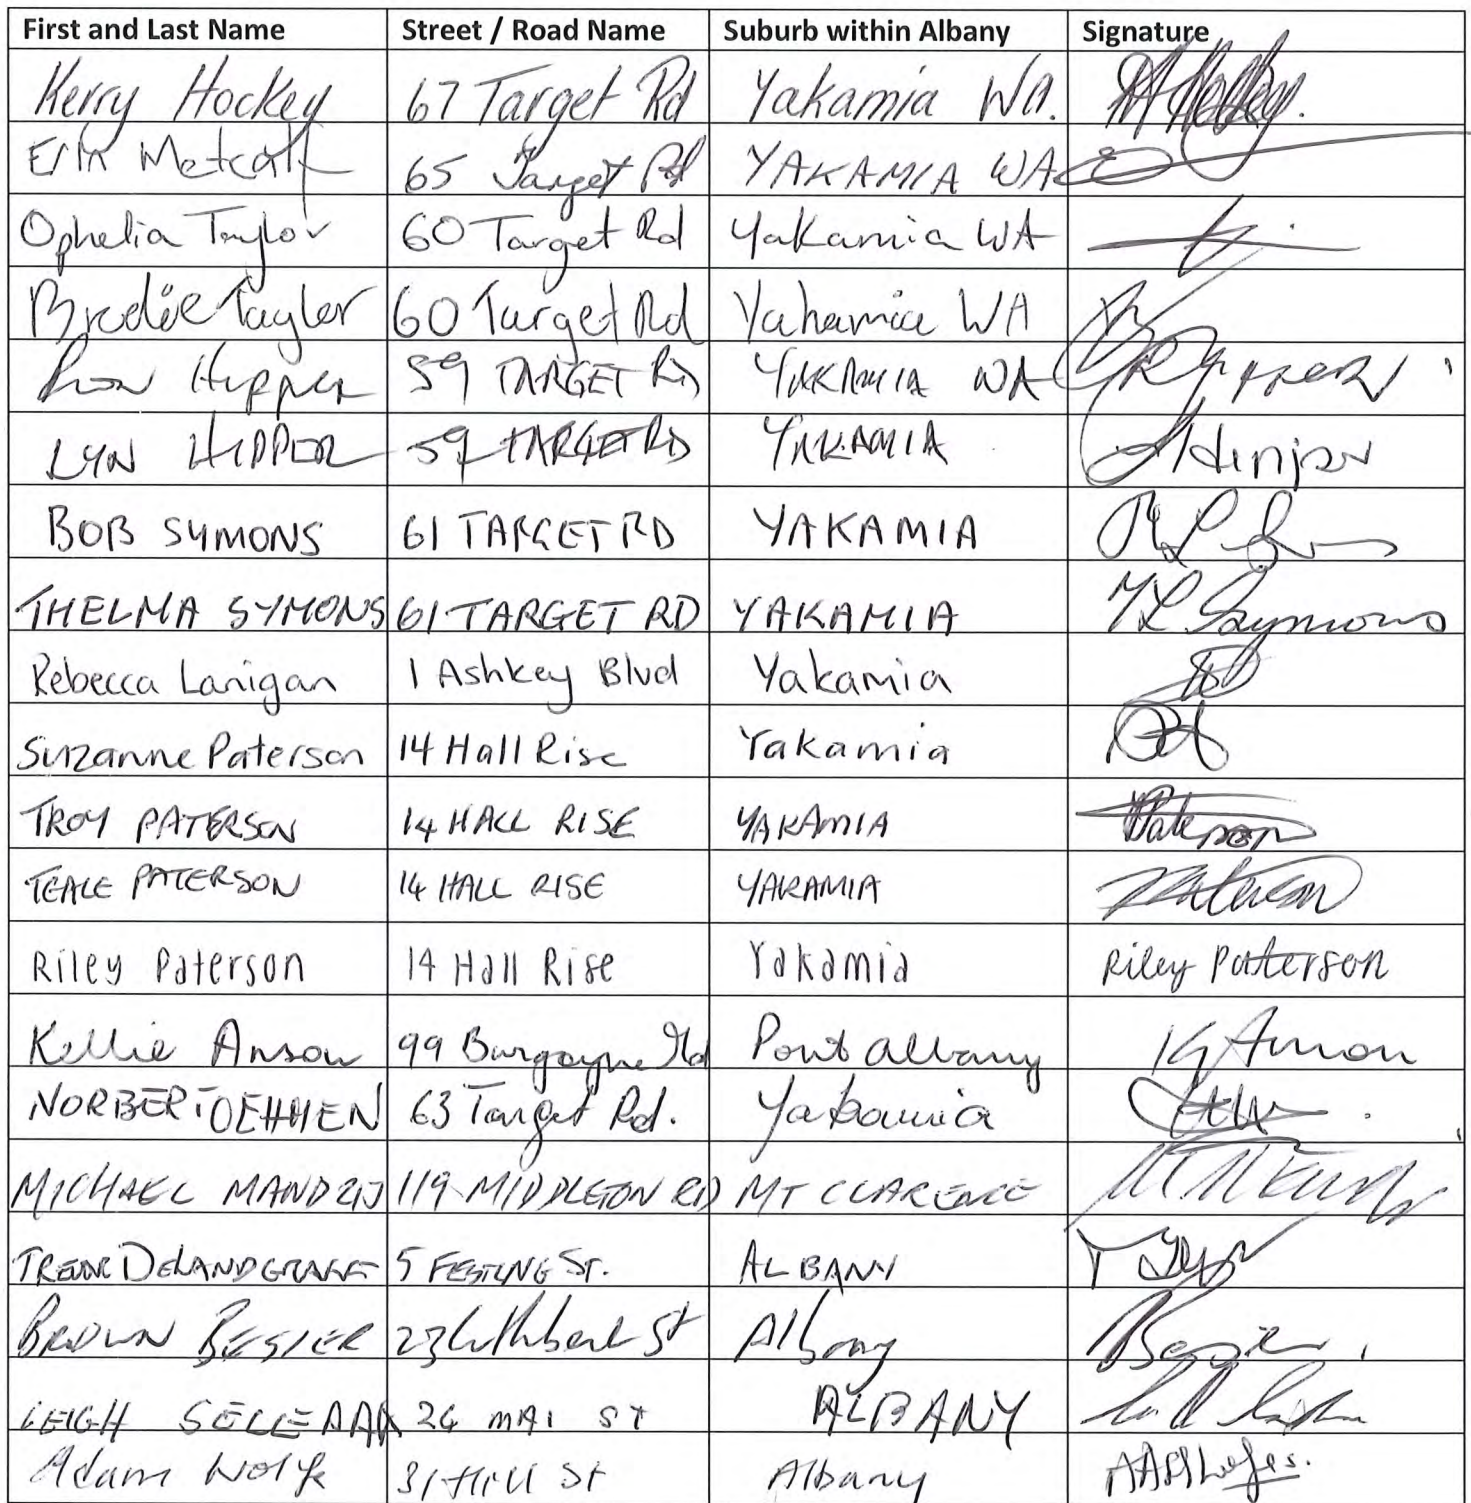 First and Last Name Street / Road Name Suburb within Albany Signature
Kerry Hockey 67 Target Rd Yakamia WA.
Erin Metcalf 65 Target Rd YAKAMIA WA
Ophelia Taylor 60 Target Rd Yakamia WA
Brodie Taylor 60 Target Rd Yakamia WA
Ron Hipper 59 TARGET RD YAKAMIA WA
LYN HIPPER 59 TARGET RD YAKAMIA
BOB SYMONS 61 TARGET RD YAKAMIA
THELMA SYMONS 61 TARGET RD YAKAMIA TL Symons
Rebecca Lanigan 1 Ashkey Blvd Yakamia
Suzanne Paterson 14 Hall Rise Yakamia
TROY PATERSON 14 HALL RISE YAKAMIA Paterson
TEALE PATERSON 14 HALL RISE YAKAMIA Paterson
Riley Paterson 14 Hall Rise Yakamia Riley Paterson
Kellie Anson 99 Burgoyne Rd Port Albany KJ Anson
NORBERT OEHMEN 63 Target Rd. Yakamia
MICHAEL MANDZIJ 119 MIDDLETON RD MT CLARENCE
TREVOR DELANDGRAFT 5 FESTING ST. ALBANY
BROWN BESIER 23 Cuthbert St Albany Besier
LEIGH 26 ST ALBANY
Adam Wolfe 31 Hill St Albany